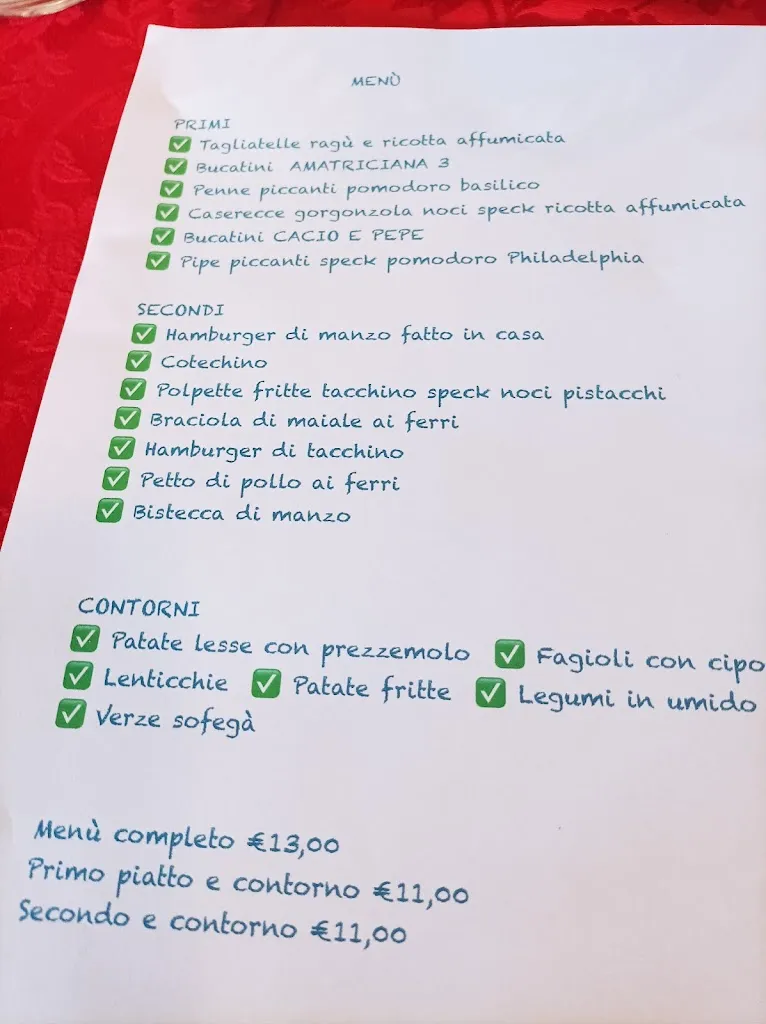 MENÙ
PRIMI
✅ Tagliatelle ragù e ricotta affumicata
✅ Bucatini AMATRICIANA 3
✅ Penne piccanti pomodoro basilico
✅ Caserecce gorgonzola noci speck ricotta affumicata
✅ Bucatini CACIO E PEPE
✅ Pipe piccanti speck pomodoro Philadelphia
SECONDI
✅ Hamburger di manzo fatto in casa
✅ Cotechino
✅ Polpette fritte tacchino speck noci pistacchi
✅ Braciola di maiale ai ferri
✅ Hamburger di tacchino
✅ Petto di pollo ai ferri
✅ Bistecca di manzo
CONTORNI
✅ Patate lesse con prezzemolo ✅ Fagioli con cipo
✅ Lenticchie ✅ Patate fritte ✅ Legumi in umido
✅ Verze sofegà
Menù completo €13,00
Primo piatto e contorno €11,00
Secondo e contorno €11,00